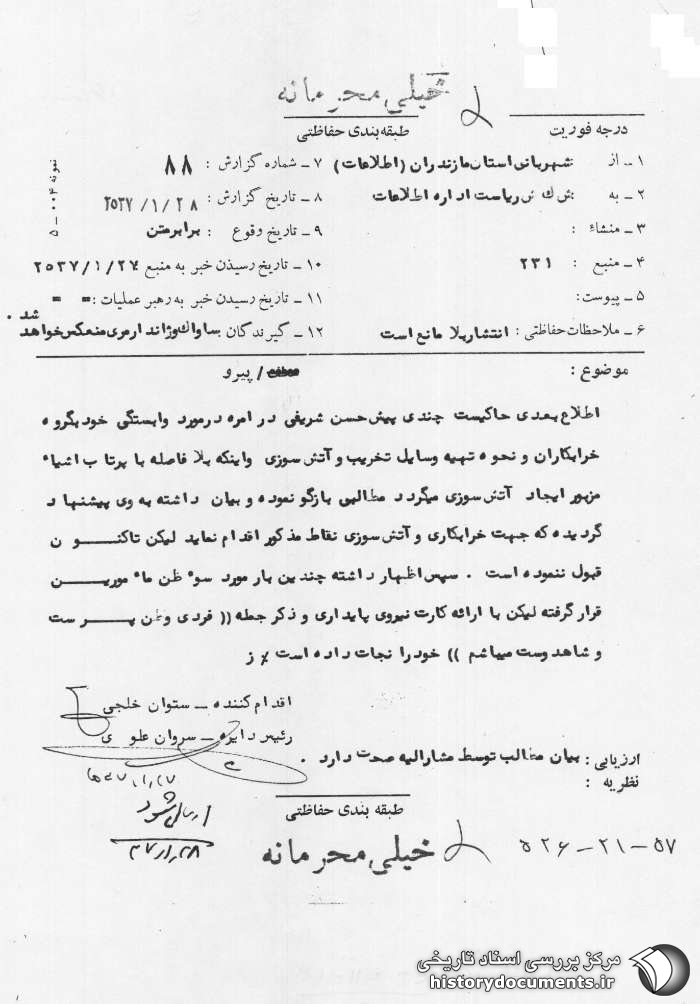 خیلی محرمانه
درجه فوریت
طبقه بندی حفاظتی
نمونه ۰۰۴ – ۵
۱ – از شهربانی استان مازندران (اطلاعات)
۷ – شماره گزارش : ۸۸
۲ – به ش ک ش ریاست اداره اطلاعات
۸ – تاریخ گزارش : ۲۵۳۷/۱/۲۸
۳ – منشاء :
۹ – تاریخ وقوع : برابر متن
۴ – منبع : ۲۳۱
۱۰ – تاریخ رسیدن خبر به منبع ۲۵۳۷/۱/۲۷
۵ – پیوست :
۱۱ – تاریخ رسیدن خبر به رهبر عملیات : = =
۶ – ملاحظات حفاظتی : انتشار بلا مانع است
۱۲ – گیرندگان ساواک و ژاندارمری منعکس خواهد شد .
موضوع :
/ پیرو
اطلاع بعدی حاکیست چندی پیش حسن شریفی در امره در مورد وابستگی خود بگروه
خرابکاران و نحوه تهیه وسایل تخریب و آتش سوزی واینکه بلا فاصله با پرتاب اشیاء
مزبور ایجاد آتش سوزی میگردد مطالبی بازگو نموده و بیان داشته به وی پیشنهاد
گردیده که جهت خرابکاری و آتش سوزی نقاط مذکور اقدام نماید لیکن تاکنــــون
قبول ننموده است . سپس اظهار داشته چندین بار مورد سوء ظن مأموریـــــن
قرار گرفته لیکن با ارائه کارت نیروی پایداری و ذکر جمله (( فردی وطن پــــرست
و شاهدوست میباشم )) خود را نجات داده است ٪ ز
اقدام کننده – ستوان خلجی
رئیس دایره – سروان علوی
ارزیابی : بیان مطالب توسط مشارالیه صحت دارد .
نظریه :
ارسال شود
۳۷/۱/۲۸
طبقه بندی حفاظتی
خیلی محرمانه
۵۷–۲۱–۵۲۶
مرکز بررسی اسناد تاریخی
historydocuments.ir